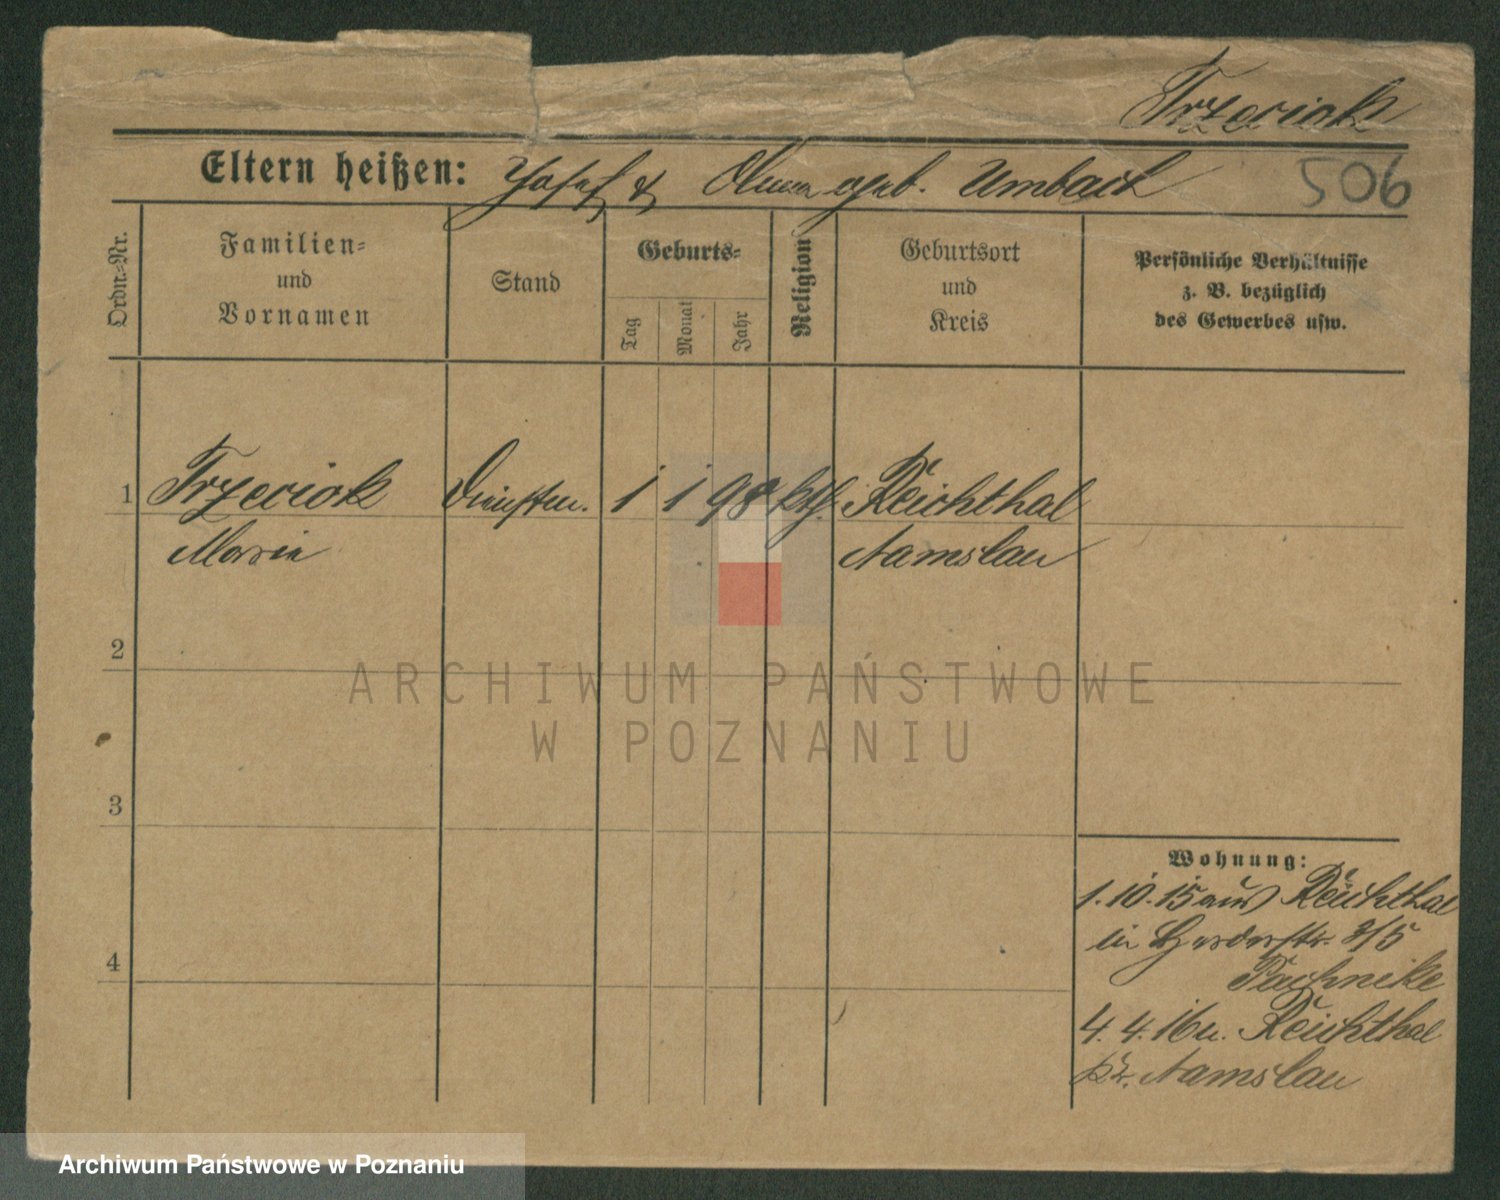 Trzeciak
Eltern heißen: Josef & Anna geb. Umbach 506
Ordn=Nr.
Familien=
und
Vornamen
Stand
Geburts=
Tag
Monat
Jahr
Religion
Geburtsort
und
Kreis
Persönliche Verhältnisse
z. B. bezüglich
des Gewerbes usw.
1 Trzeciak Dienstm. 1 1 98 kth. Reichthal
Maria Namslau
2
3
4
Wohnung:
1.10.15 aus Reichthal
in Herderstr. 3/5
Pachnike
4.4.16 n. Reichthal
Kr. Namslau
ARCHIWUM PAŃSTWOWE
W POZNANIU
Archiwum Państwowe w Poznaniu